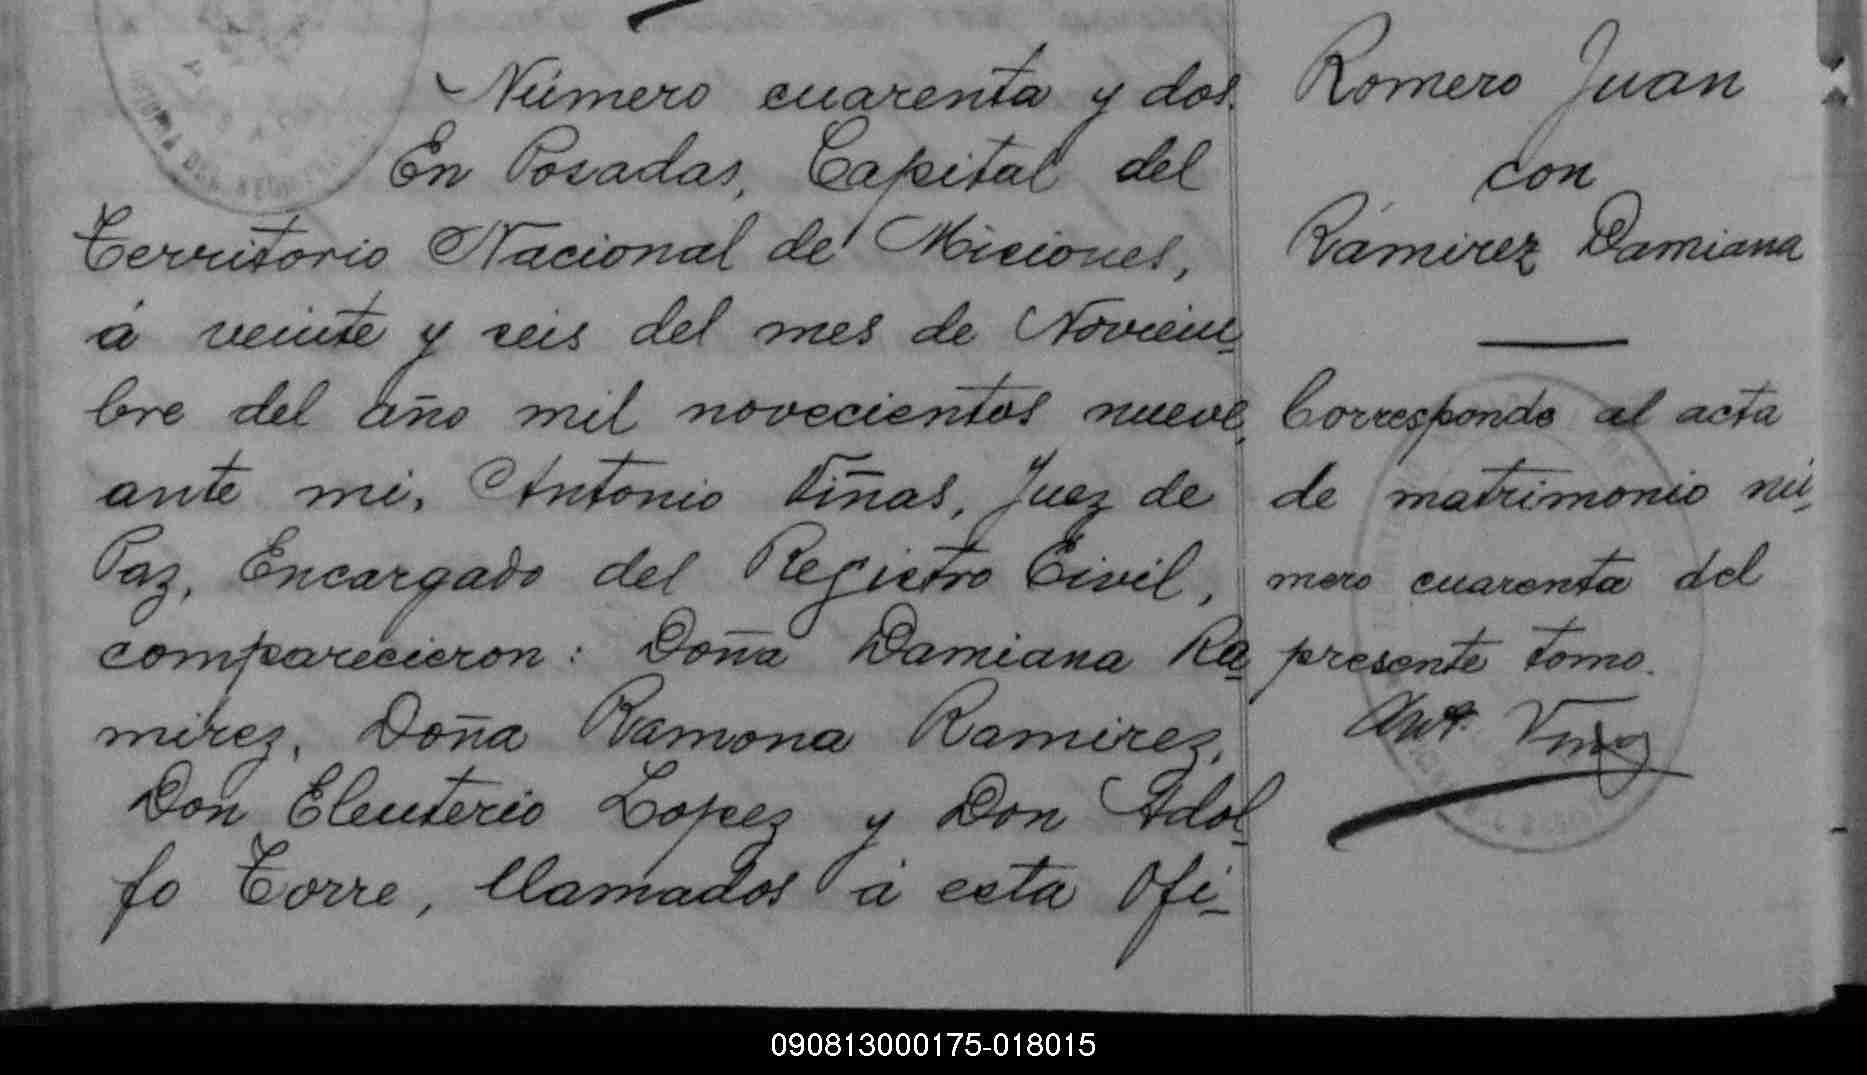 Número cuarenta y dos.
En Posadas, Capital del
Territorio Nacional de Misiones,
á veinte y seis del mes de Noviem-
bre del año mil novecientos nueve,
ante mi, Antonio Viñas, Juez de
Paz, Encargado del Registro Civil,
comparecieron: Doña Damiana Ra-
mirez, Doña Ramona Ramirez,
Don Eleuterio Lopez y Don Adol-
fo Torre, llamados á esta Ofi-
Romero Juan
con
Rámirez Damiana
Corresponde al acta
de matrimonio nú-
mero cuarenta del
presente tomo.
Ant. Viñas
090813000175-018015